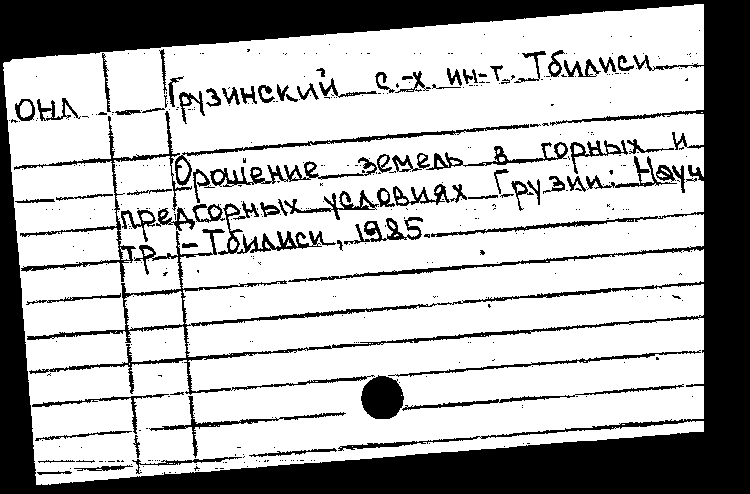 ОНЛ
Грузинский с.-х. ин-т. Тбилиси
Орошение земель в горных и
предгорных условиях Грузии: Науч
тр. - Тбилиси, 1985